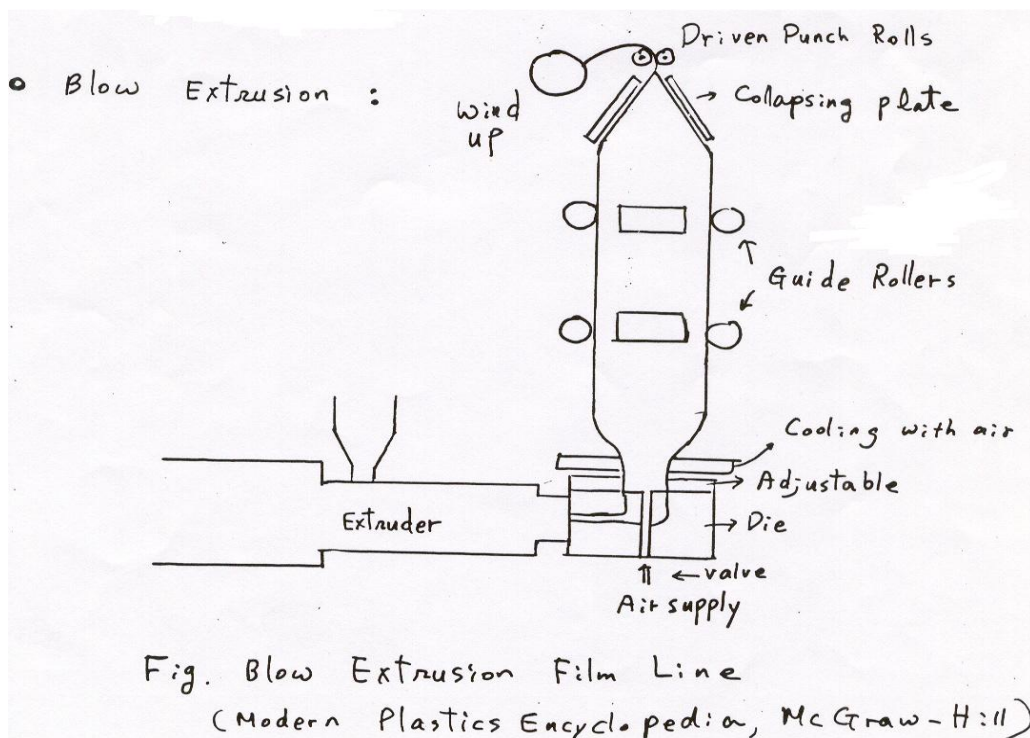 Driven Punch Rolls
• Blow Extrusion :
wind
up
Collapsing plate
Guide Rollers
Cooling with air
Adjustable
Extruder
Die
valve
Air supply
Fig. Blow Extrusion Film Line
(Modern Plastics Encyclopedia, McGraw-Hill)